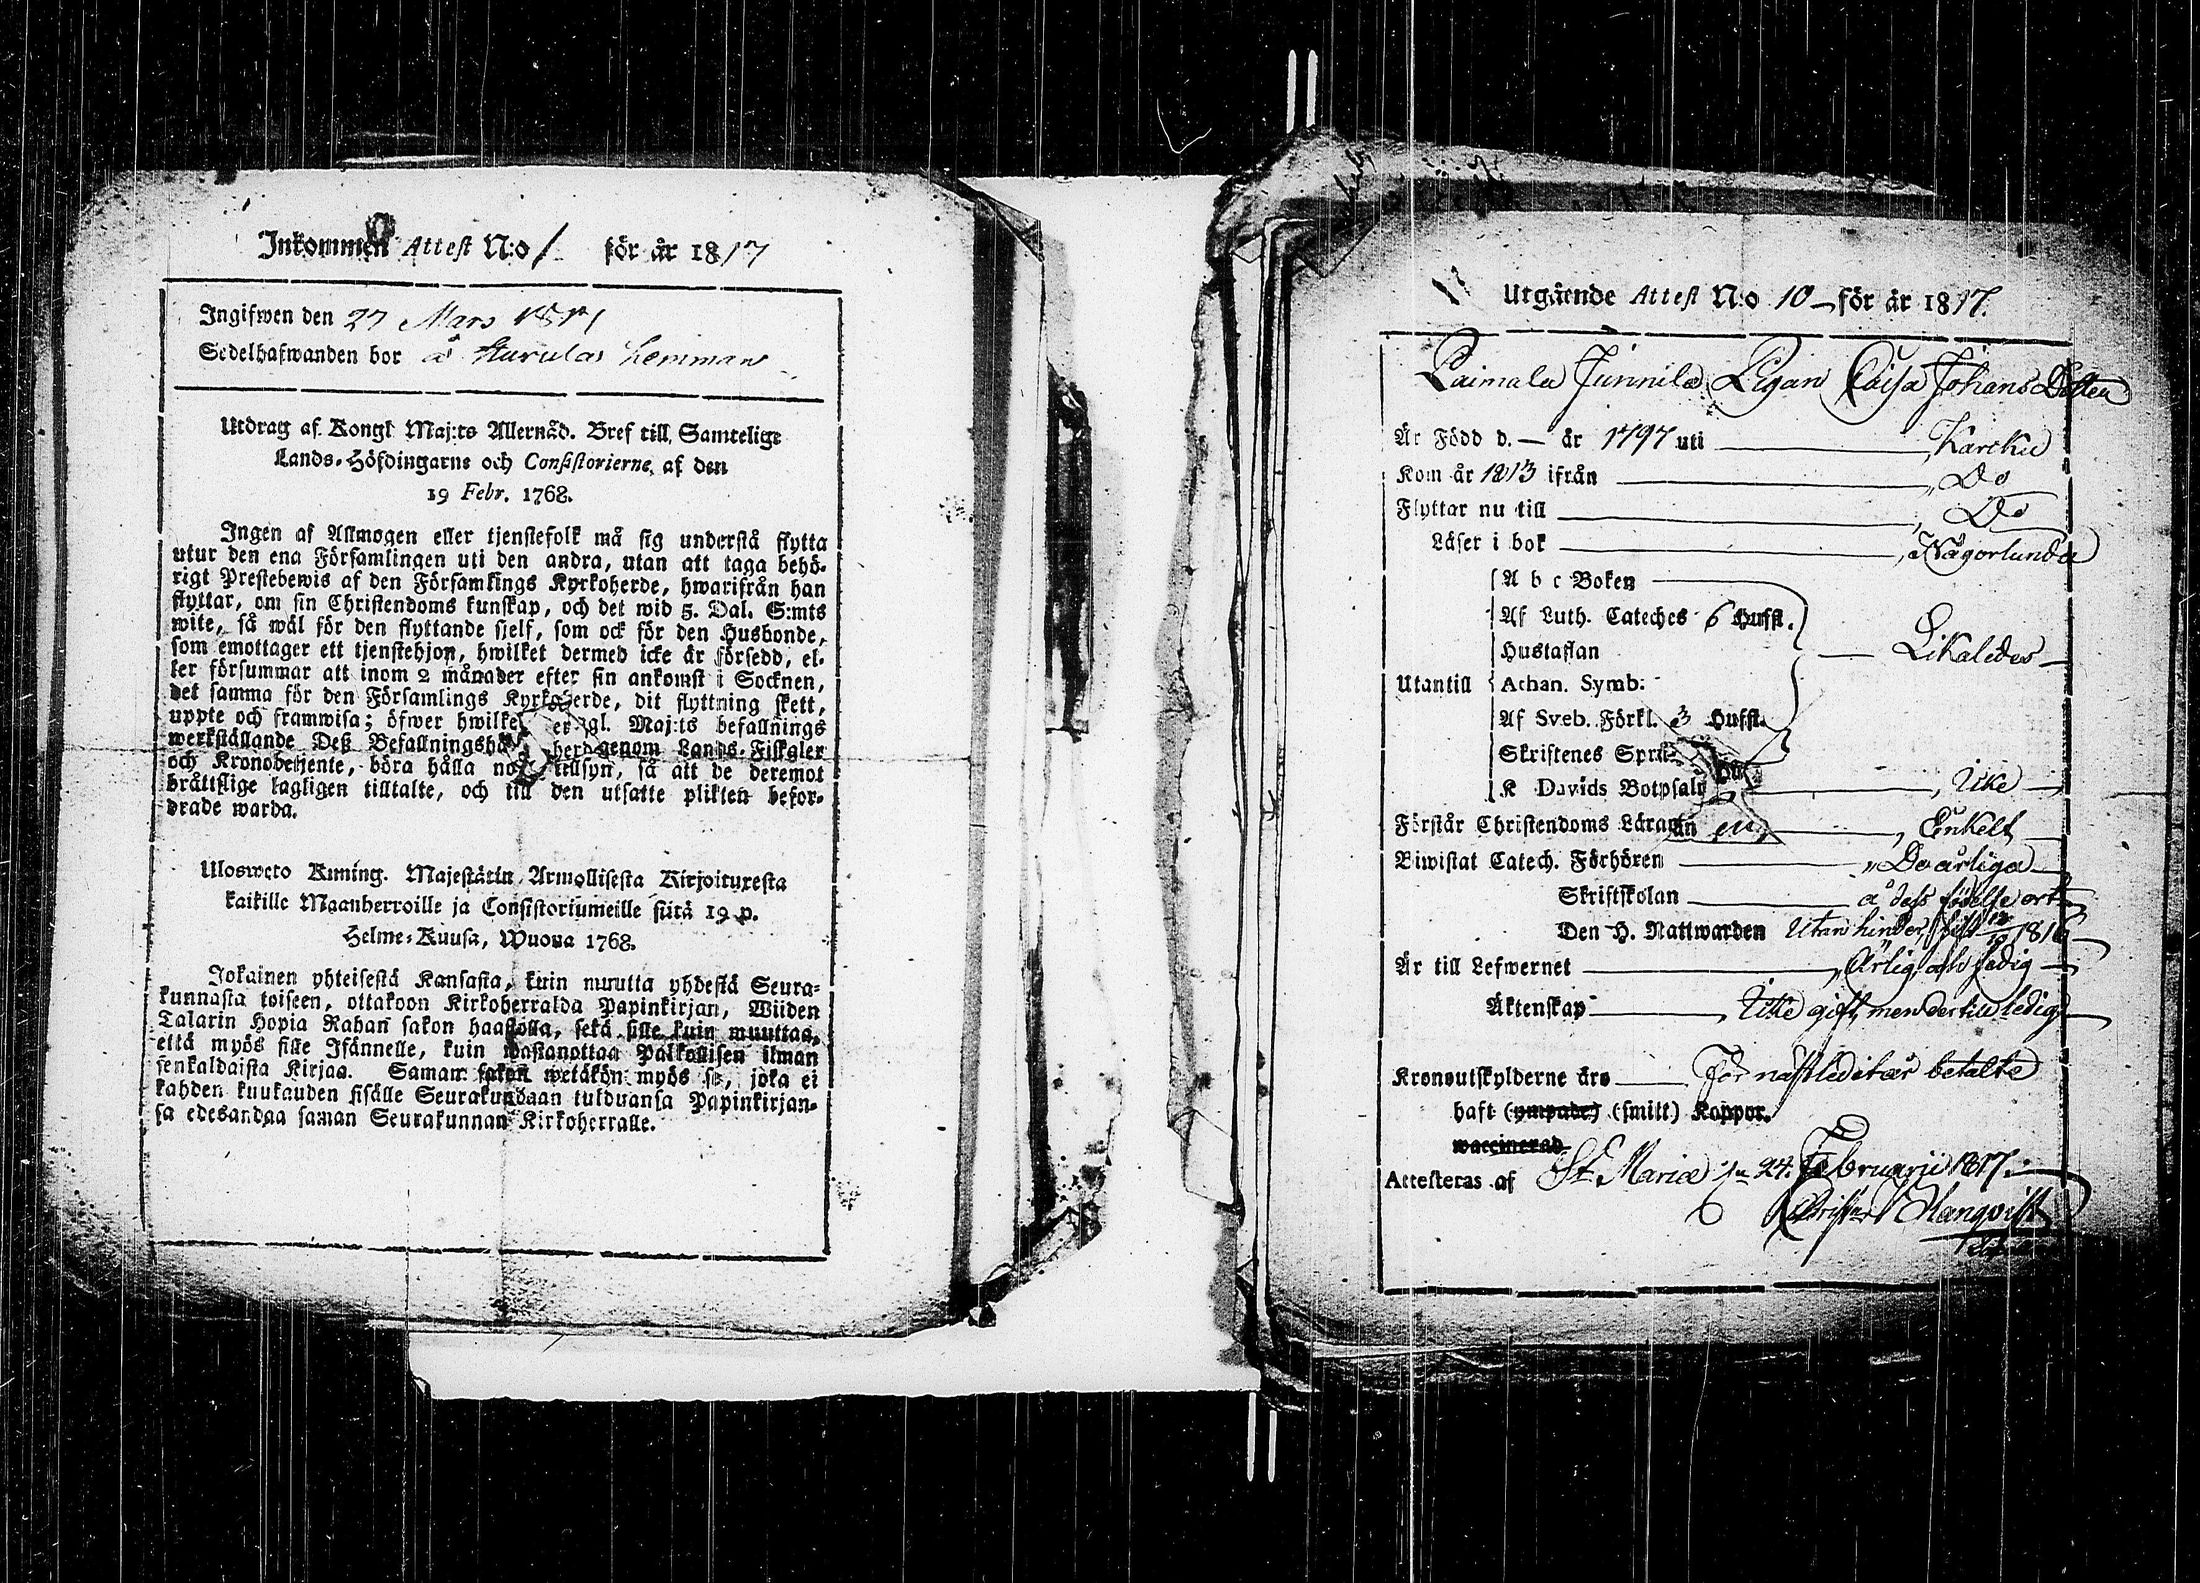 Inkommen Attest N:o 1 för år 1817
Ingifwen den 27 Mars 1817
Sedelhafwanden bor å hemman
Utdrag af Kongl Maj:ts Allernåd. Bref till Samtelige
Lands-Höfdingarne och Consistorierne, af den
19 Febr. 1768.
Ingen af Allmogen eller tjenstefolk må sig understå flytta
utur den ena Församlingen uti den andra, utan att taga behö-
rigt Prestebewis af den Församlings Kyrkoherde, hwarifrån han
flyttar, om sin Christendoms kunskap, och det wid 5. Dal. S:mts
wite, så wäl för den flyttande sjelf, som ock för den Husbonde,
som emottager ett tjenstehjon, hwilket dermed icke är försedd, el-
ler försummar att inom 2 månader efter sin ankomst i Socknen,
det samma för den Församlings Kyrkoherde, dit flyttning skett,
uppte och framwisa; öfwer hwilket Maj:ts befallnings
werkställande Deß genom Lands-Fiskaler
och Kronobetjente, böra hålla tillsyn, så att de deremot
bråttslige lagligen tilltalte, och till den utsatte plikten befor-
drade warda.
Ulosweto Kuning. Majestätin Armollisesta Kirjoituxesta
kaikille Maanherroille ja Consistoriumeille siitä 19 p.
Helme-Kuusa, Wuona 1768.
Jokainen yhteisestä Kansasta, kuin muutta yhdestä Seura-
kunnasta toiseen, ottakoon Kirkoherralda Papinkirjan, Wiiden
Talarin Hopia Rahan sakon haastolla, sekä sille kuin muuttaa,
että myös sille Isännelle, kuin wastanottaa Palkollisen ilman
senkaldaista Kirjaa. Saman sakon wetäkön myös se, joka ei
kahden kuukauden sisälle Seurakundaan tulduansa Papinkirjan-
sa edesandaa saman Seurakunnan Kirkoherralle.
Utgående Attest N:o 10 för år 1817.
Laimala Junnila Pigan Caisa Johans Dotter
Är Född d. — år 1797 uti Karcku
Kom år 1813 ifrån Do
Flyttar nu till Do
Läser i bok Någorlunda
A b c Boken
Af Luth. Cateches 6 Hufst.
Hustaflan Likaledes
Utantill Athan. Symb:
Af Sveb. Förkl. 3 Hufst.
Skriftenes Språk
K Davids Botpsalm Icke
Förstår Christendoms Läran Enkelt
Biwistat Catech. Förhören Do årliga
Skriftskolan å dess födelse ort
Den H. Nattwarden Utan hinder, sist 1816
Är till Lefwernet Ärlig och sedig
Äktenskap Icke gift, men dertill ledig
Kronoutskylderne äro För nästledit år betalte
haft (ympade) (smitt) Koppor.
waccinerad
Attesteras af St. Mariæ den 24. Februarii 1817.